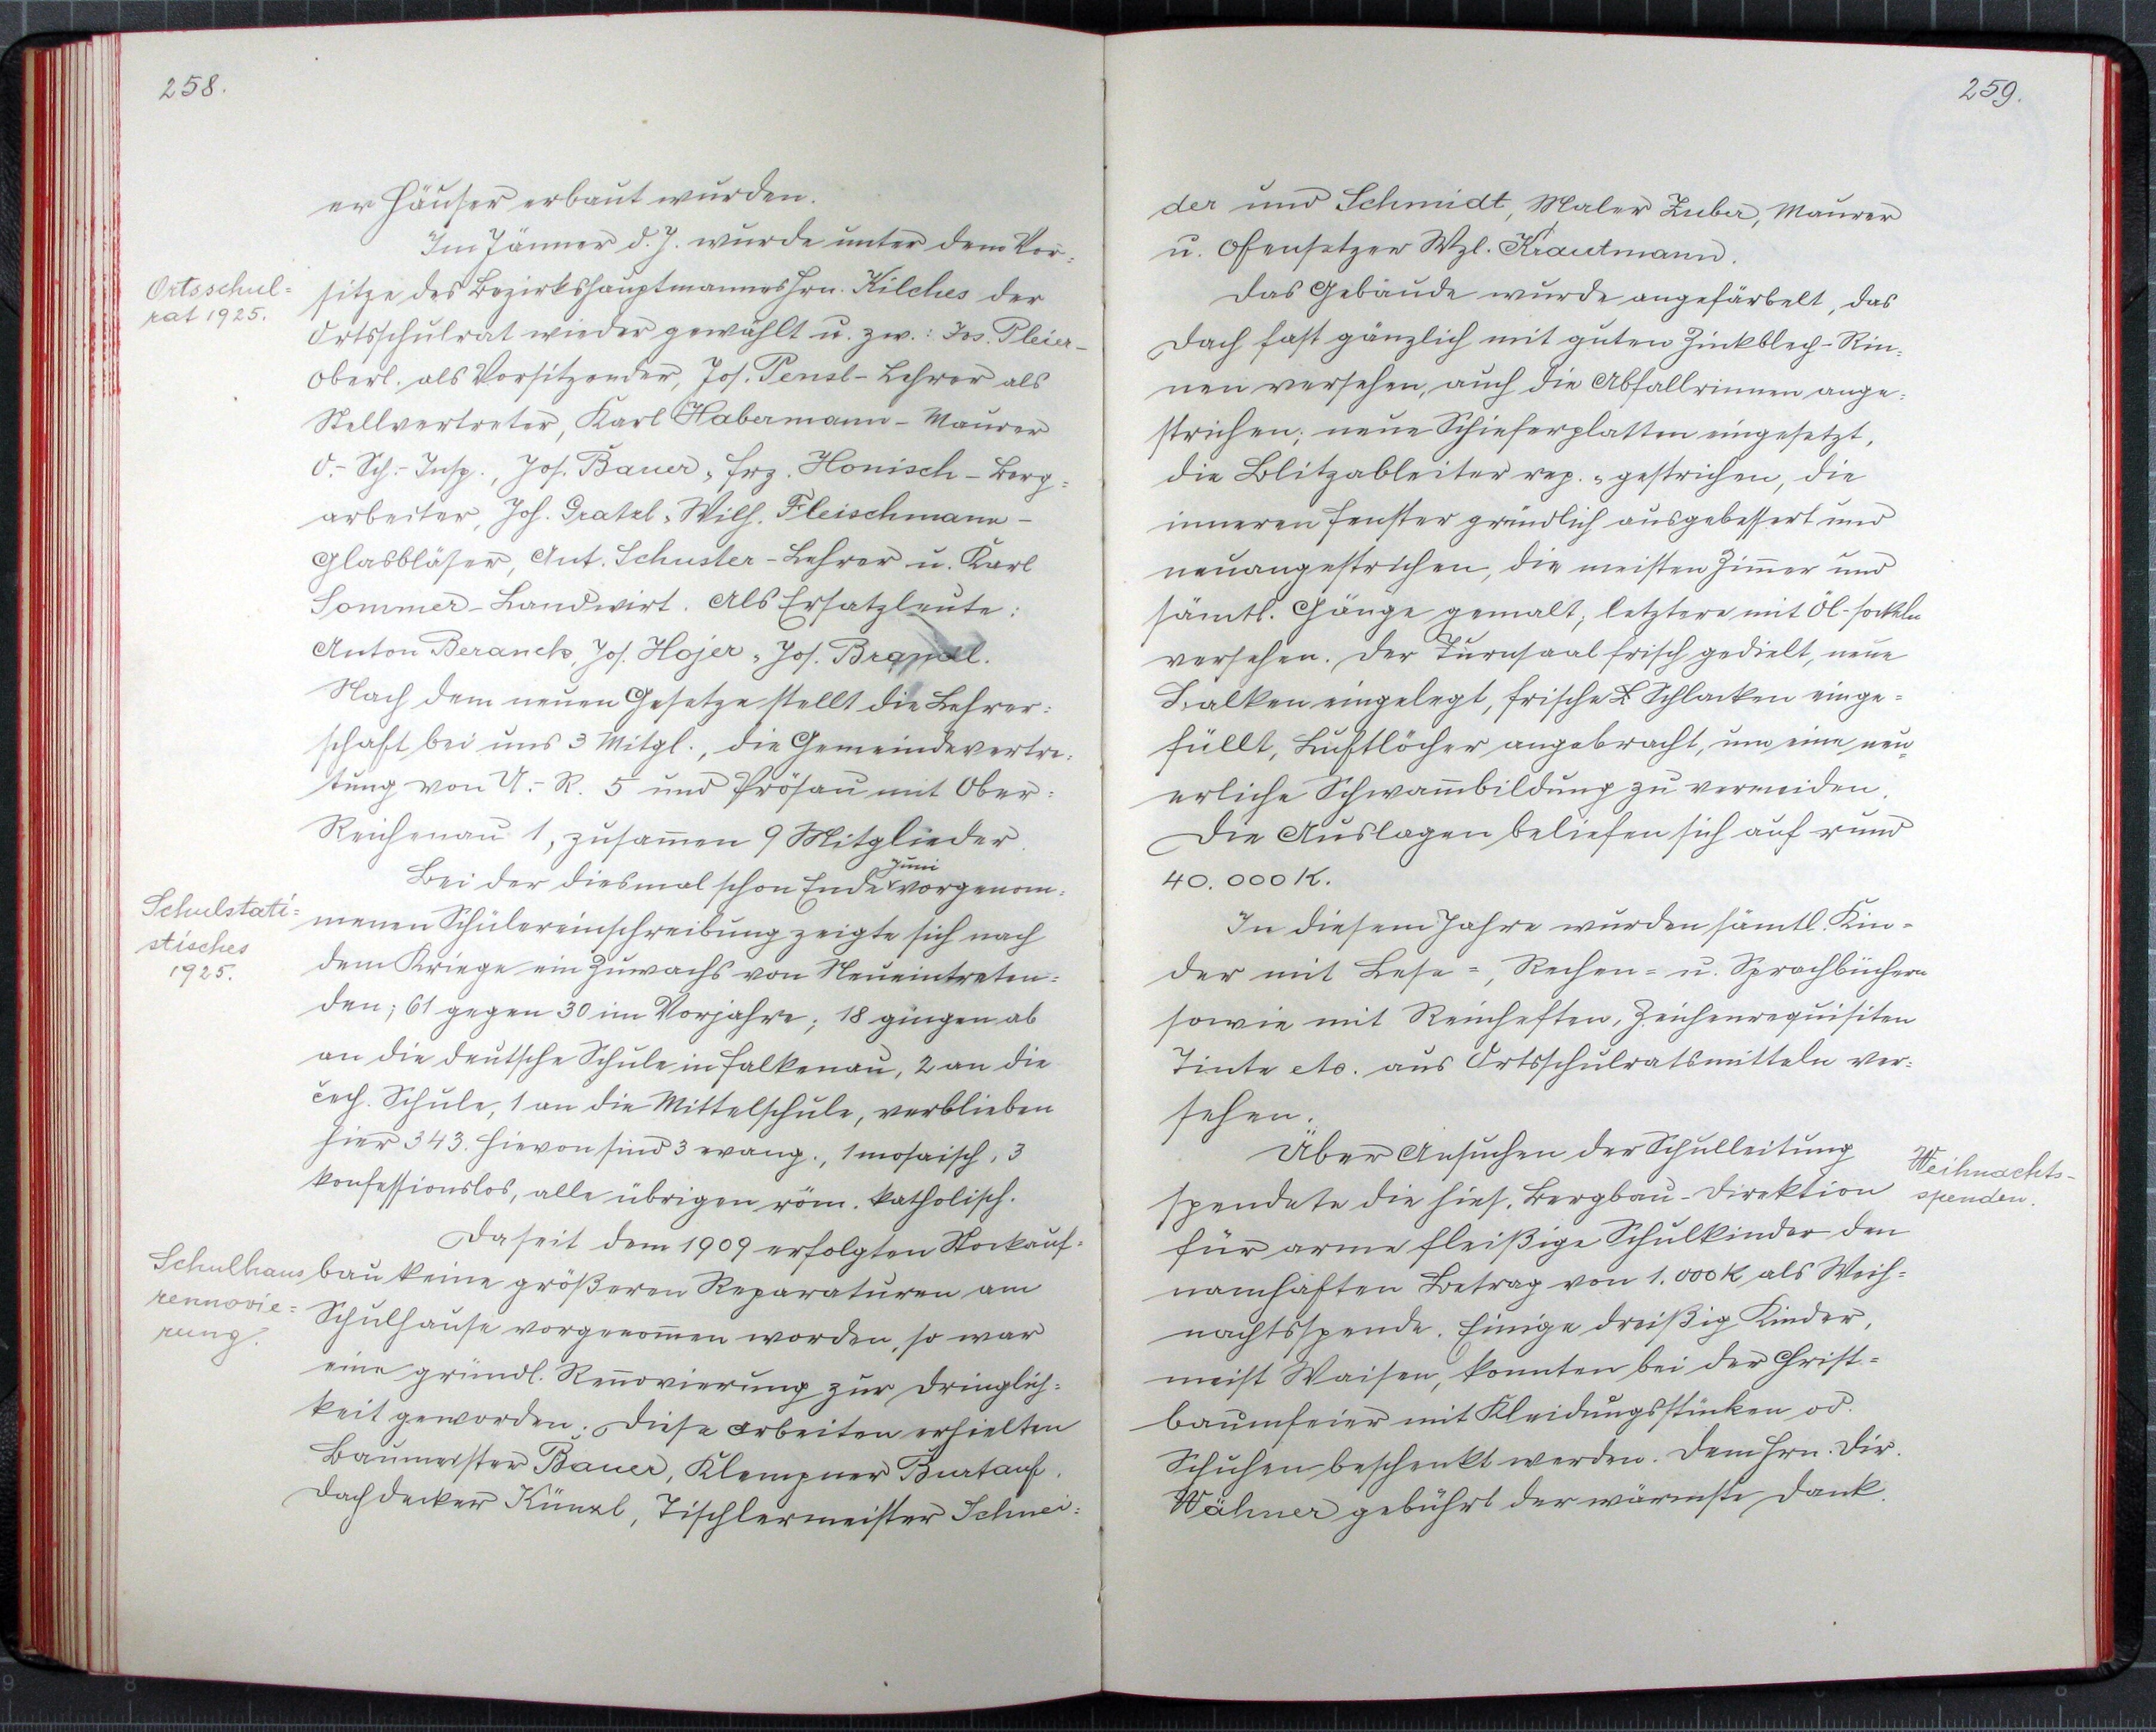 258.
er Häuser erbaut wurden.
Im Jänner d. J. wurde unter dem Vor=
Ortsschul=
rat 1925.
sitze des Bezirkshauptmannes Hrn. Kilches der
Ortsschulrat wieder gewählt u. zw.: Jos. Pleier-
Oberl. als Vorsitzender, Jos. Pensl - Lehrer als
Stellvertreter, Karl Habermann - Maurer
O.- Sch.- Insp., Jos. Bauer, Frz. Honisch - Berg=
arbeiter, Joh. Gratzl, Wilh. Fleischmann -
Glasbläser, Ant. Schuster - Lehrer u. Karl
Sommer - Landwirt. Als Ersatzleute:
Anton Beranek, Jos. Hojer, Jos. Brandl.
Nach dem neuen Gesetze stellt die Lehrer=
schaft bei uns 3 Mitgl., die Gemeindevertre=
tung von U.- R. 5 und Prösau mit Ober=
Reichenau 1, zusammen 9 Mitglieder.
Bei der diesmal schon Ende Juni vorgenom=
Schulstati=
stisches
1925.
menen Schülereinschreibung zeigte sich nach
dem Kriege ein Zuwachs von Neueintreten=
den; 61 gegen 30 im Vorjahre; 18 gingen ab
an die deutsche Schule in Falkenau, 2 an die
čech. Schule, 1 an die Mittelschule, verblieben
hier 343. Hievon sind 3 evang., 1 mosaisch, 3
konfessionslos, alle übrigen röm. katholisch.
Da seit dem 1909 erfolgten Stockauf=
Schulhaus
rennovie=
rung.
bau keine größeren Reparaturen am
Schulhause vorgenommen worden, so war
eine gründl. Rennovierung zur Dringlich=
keit geworden. Diese Arbeiten erhielten
Baumeister Bauer, Klempner Burtauf,
Dachdecker Künzl, Tischlermeister Schnei=
259.
der und Schmidt, Maler Zuber, Maurer
u. Ofensetzer Wzl. Krautmann.
Das Gebäude wurde angefärbelt, das
Dach fast gänzlich mit guten Zinkblech-Rin=
nen versehen, auch die Abfallrinnen ange=
strichen; neue Schieferplatten eingesetzt,
die Blitzableiter rep. " gestrichen, die
inneren Fenster gründlich ausgebessert und
neuangestrichen, die meisten Zimmer und
sämtl. Gänge gemalt; letztere mit Öl-sockeln
versehen. Der Turnsaal frisch gedielt, neue
Balken eingelegt, frische Schlacken einge=
füllt, Luftlöcher angebracht, um eine neu=
erliche Schwammbildung zu vermeiden.
Die Auslagen beliefen sich auf rund
40.000 K.
In diesem Jahre wurden sämtl. Kin=
der mit Lese=, Rechen= u. Sprachbüchern
sowie mit Reinheften, Zeichenrequisiten
Tinte etc. aus Ortsschulratsmitteln ver=
sehen.
Über Ansuchen der Schulleitung
Weihnachts-
spenden.
spendete die hies. Bergbau-Direktion
für arme fleißige Schulkinder den
namhaften Betrag von 1.000 K als Weih=
nachtsspende. Einige dreißig Kinder,
meist Waisen, konnten bei der Christ=
baumfeier mit Kleidungsstücken od.
Schuhen beschenkt werden. Dem Hrn. Dir.
Wähner gebührt der wärmste Dank.